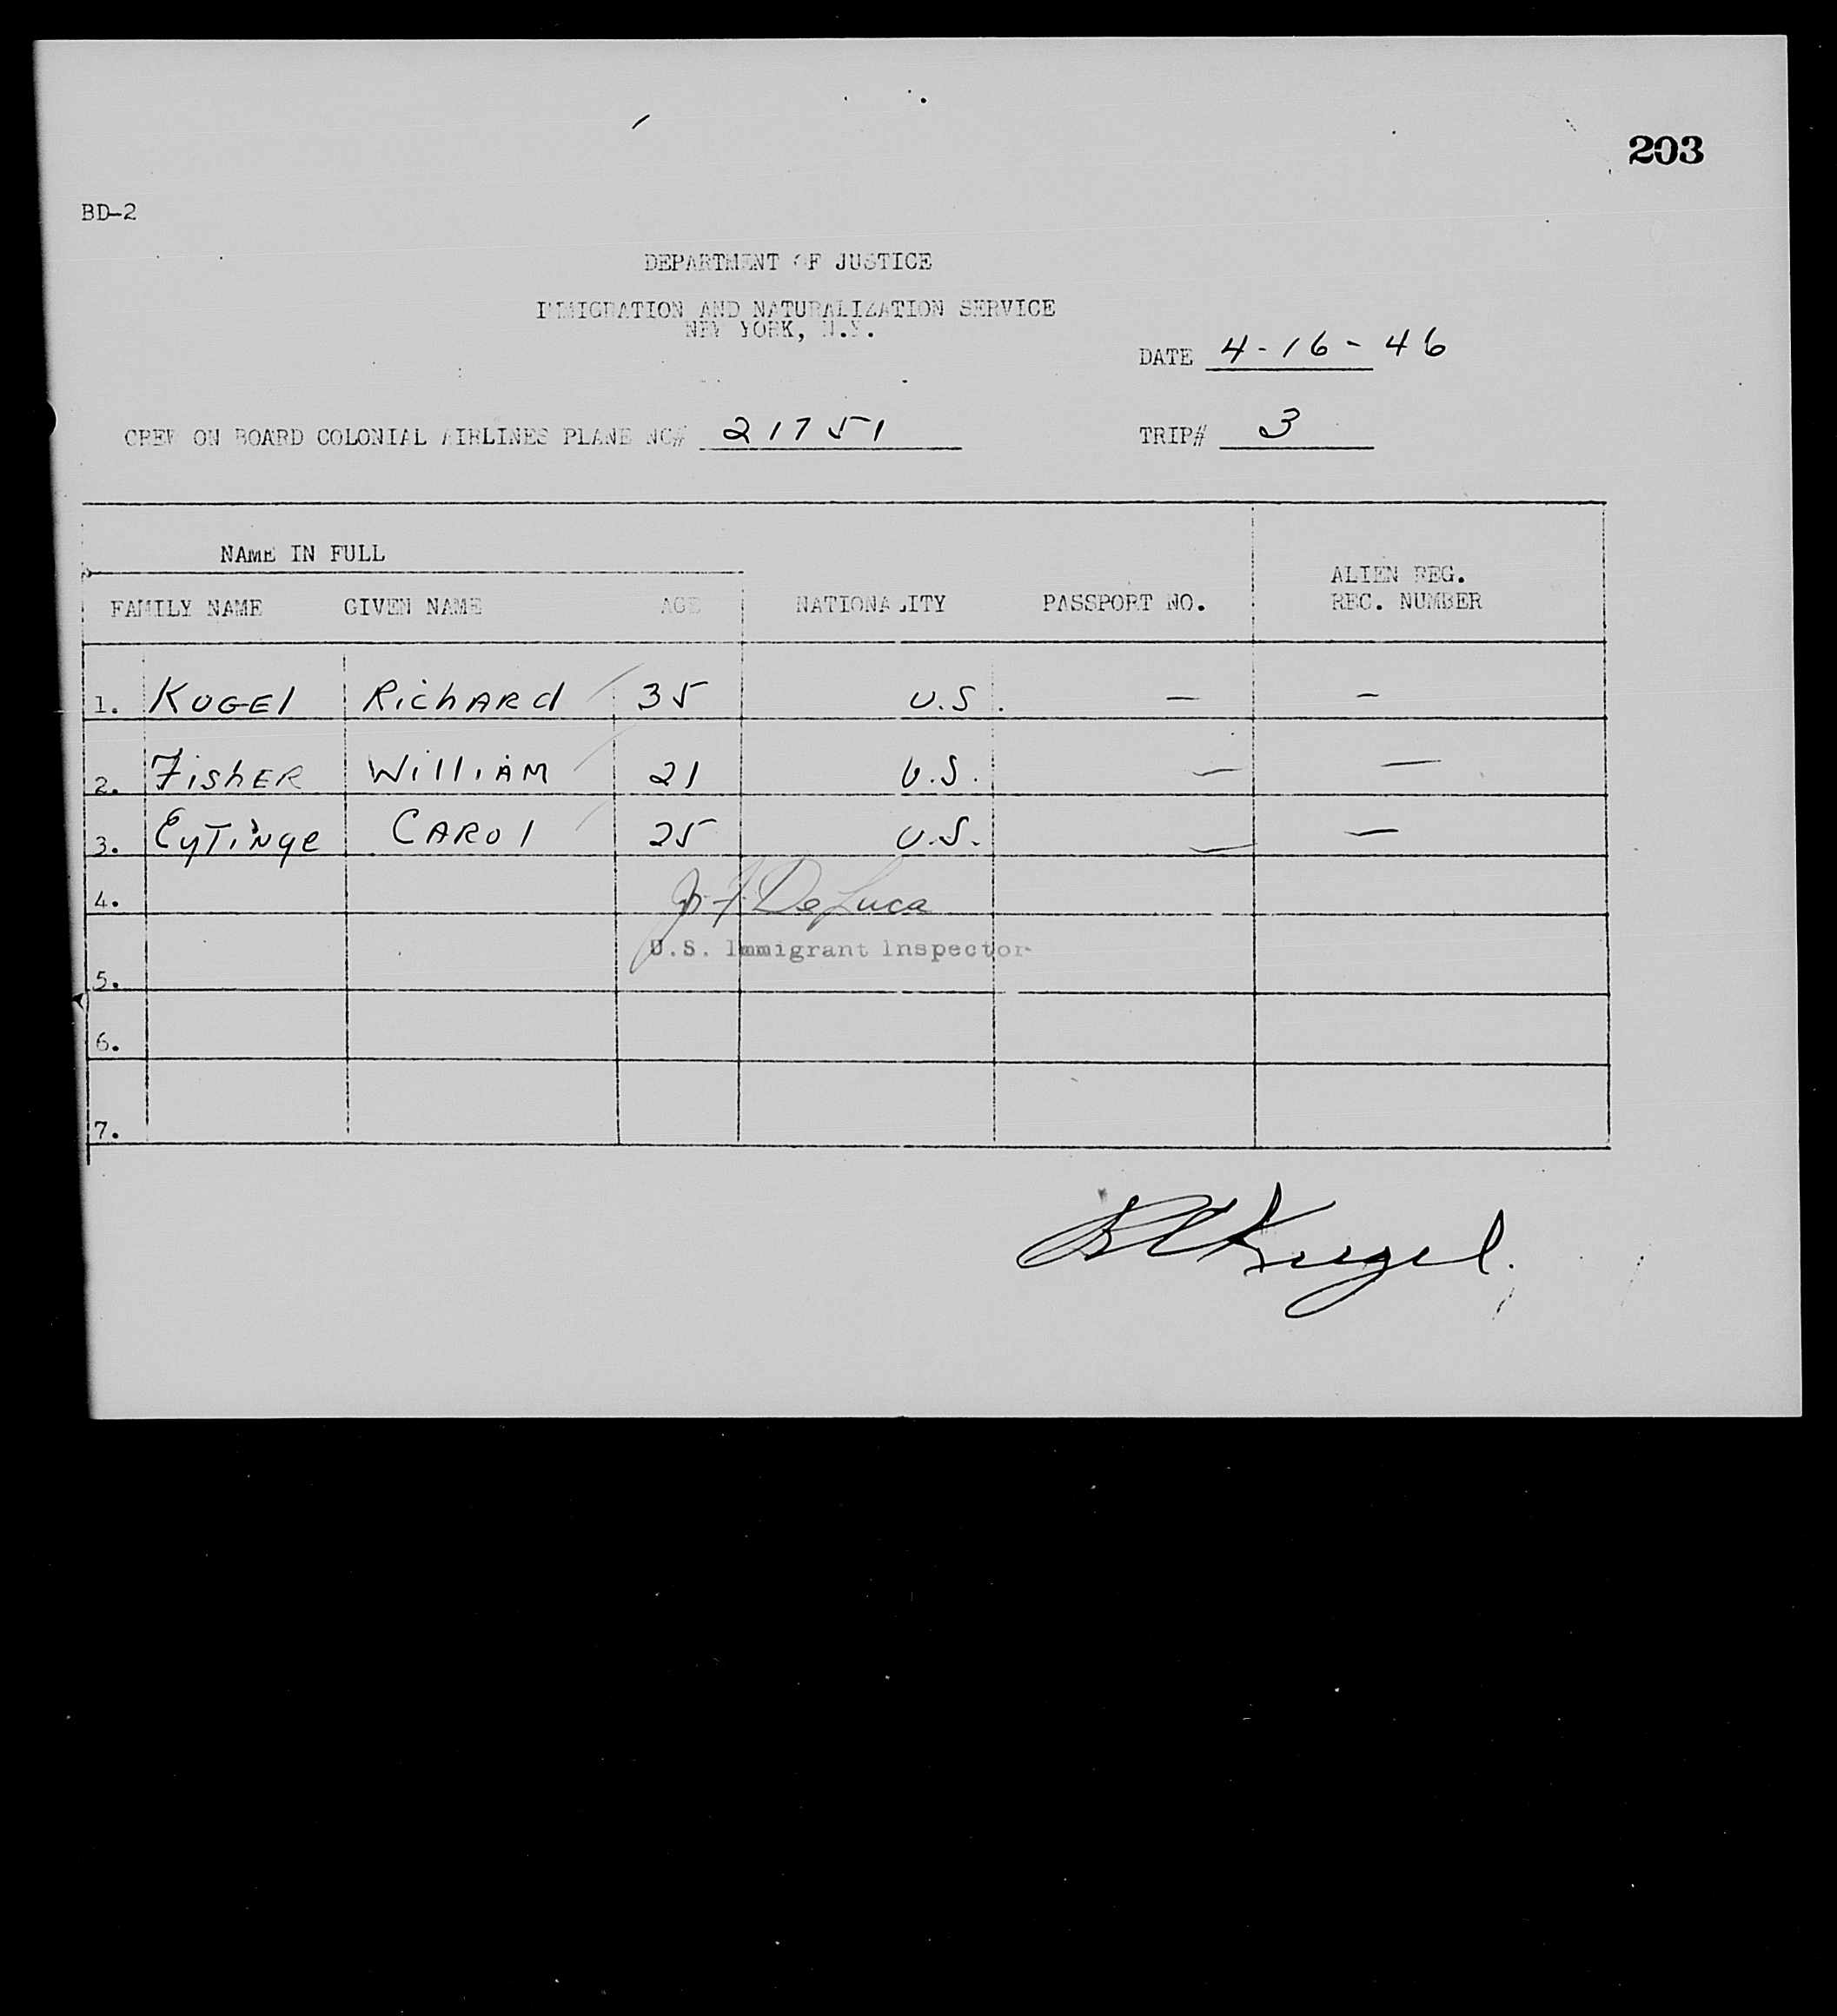 203
BD-2
DEPARTMENT OF JUSTICE
IMMIGRATION AND NATURALIZATION SERVICE
NEW YORK, N.Y.
DATE 4-16-46
CREW ON BOARD COLONIAL AIRLINES PLANE NC# 21751 TRIP# 3
NAME IN FULL
ALIEN REG.
FAMILY NAME GIVEN NAME AGE NATIONALITY PASSPORT NO. REC. NUMBER
1. KUGEl RichARd 35 U.S. — —
2. FishER WilliAM 21 U.S. — —
3. EyTiNge CAROl 25 U.S. — —
4. J. F. De Luca
U.S. Immigrant Inspector
5.
6.
7.
R C Kugel.